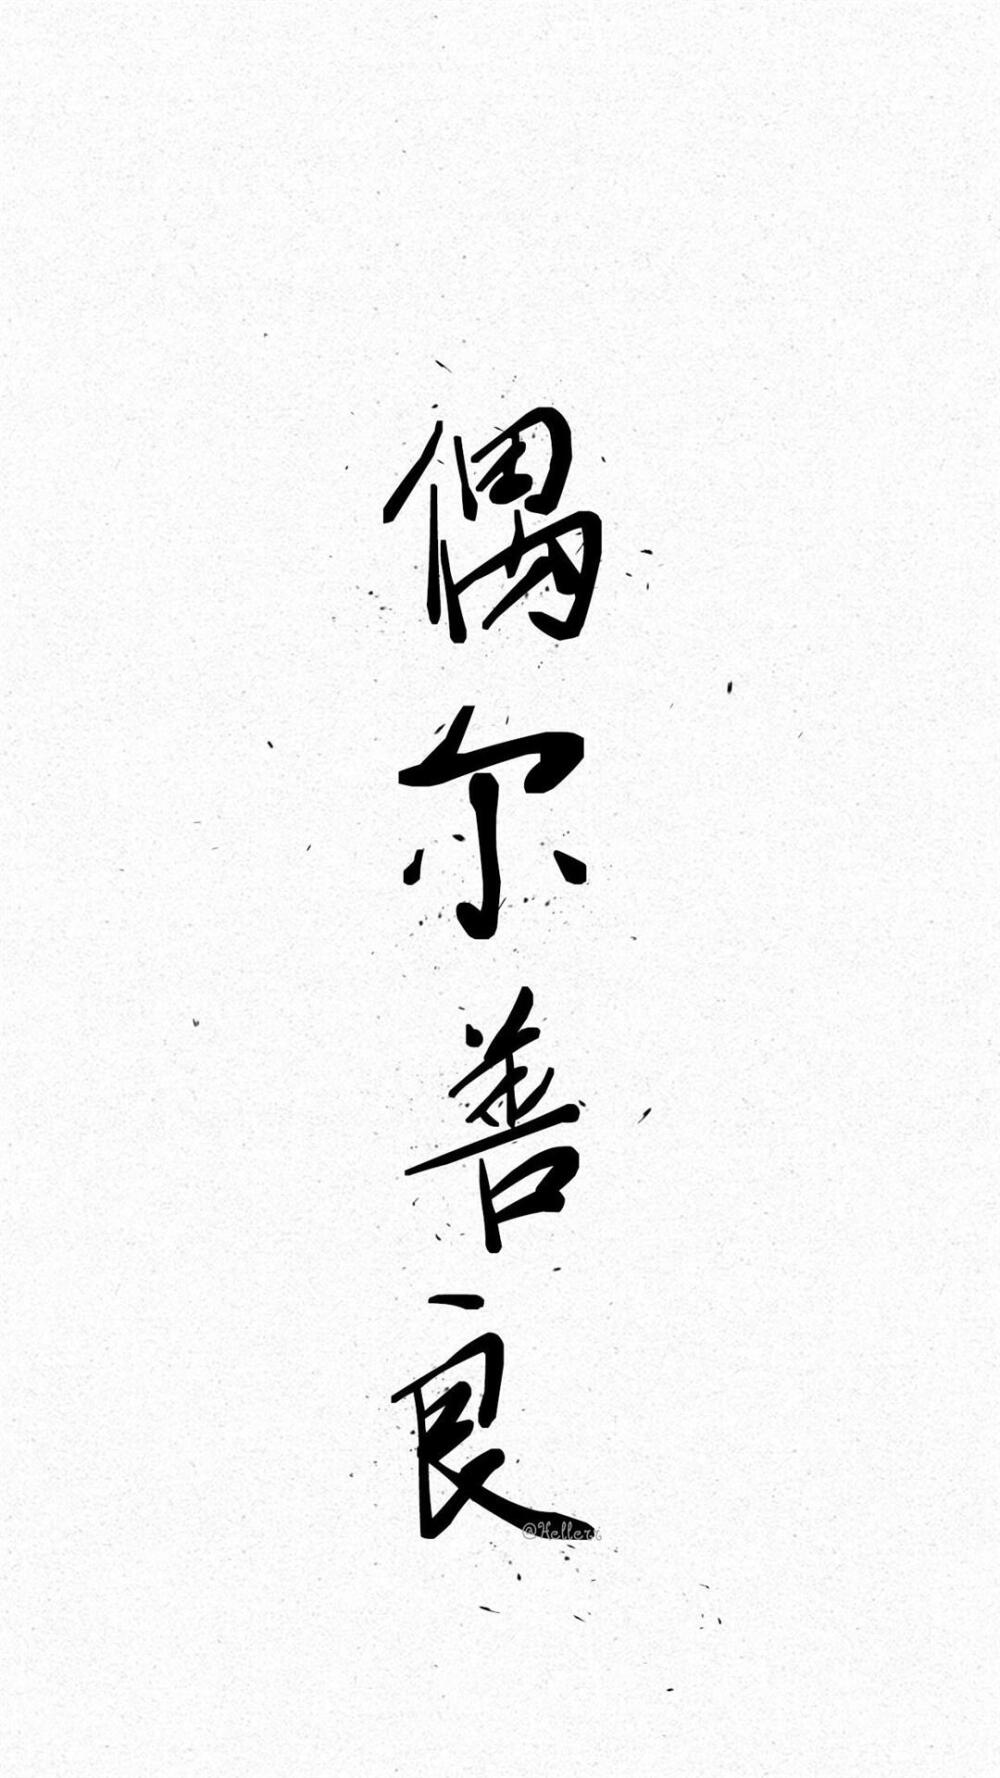 偶尔善良
@Hellerr